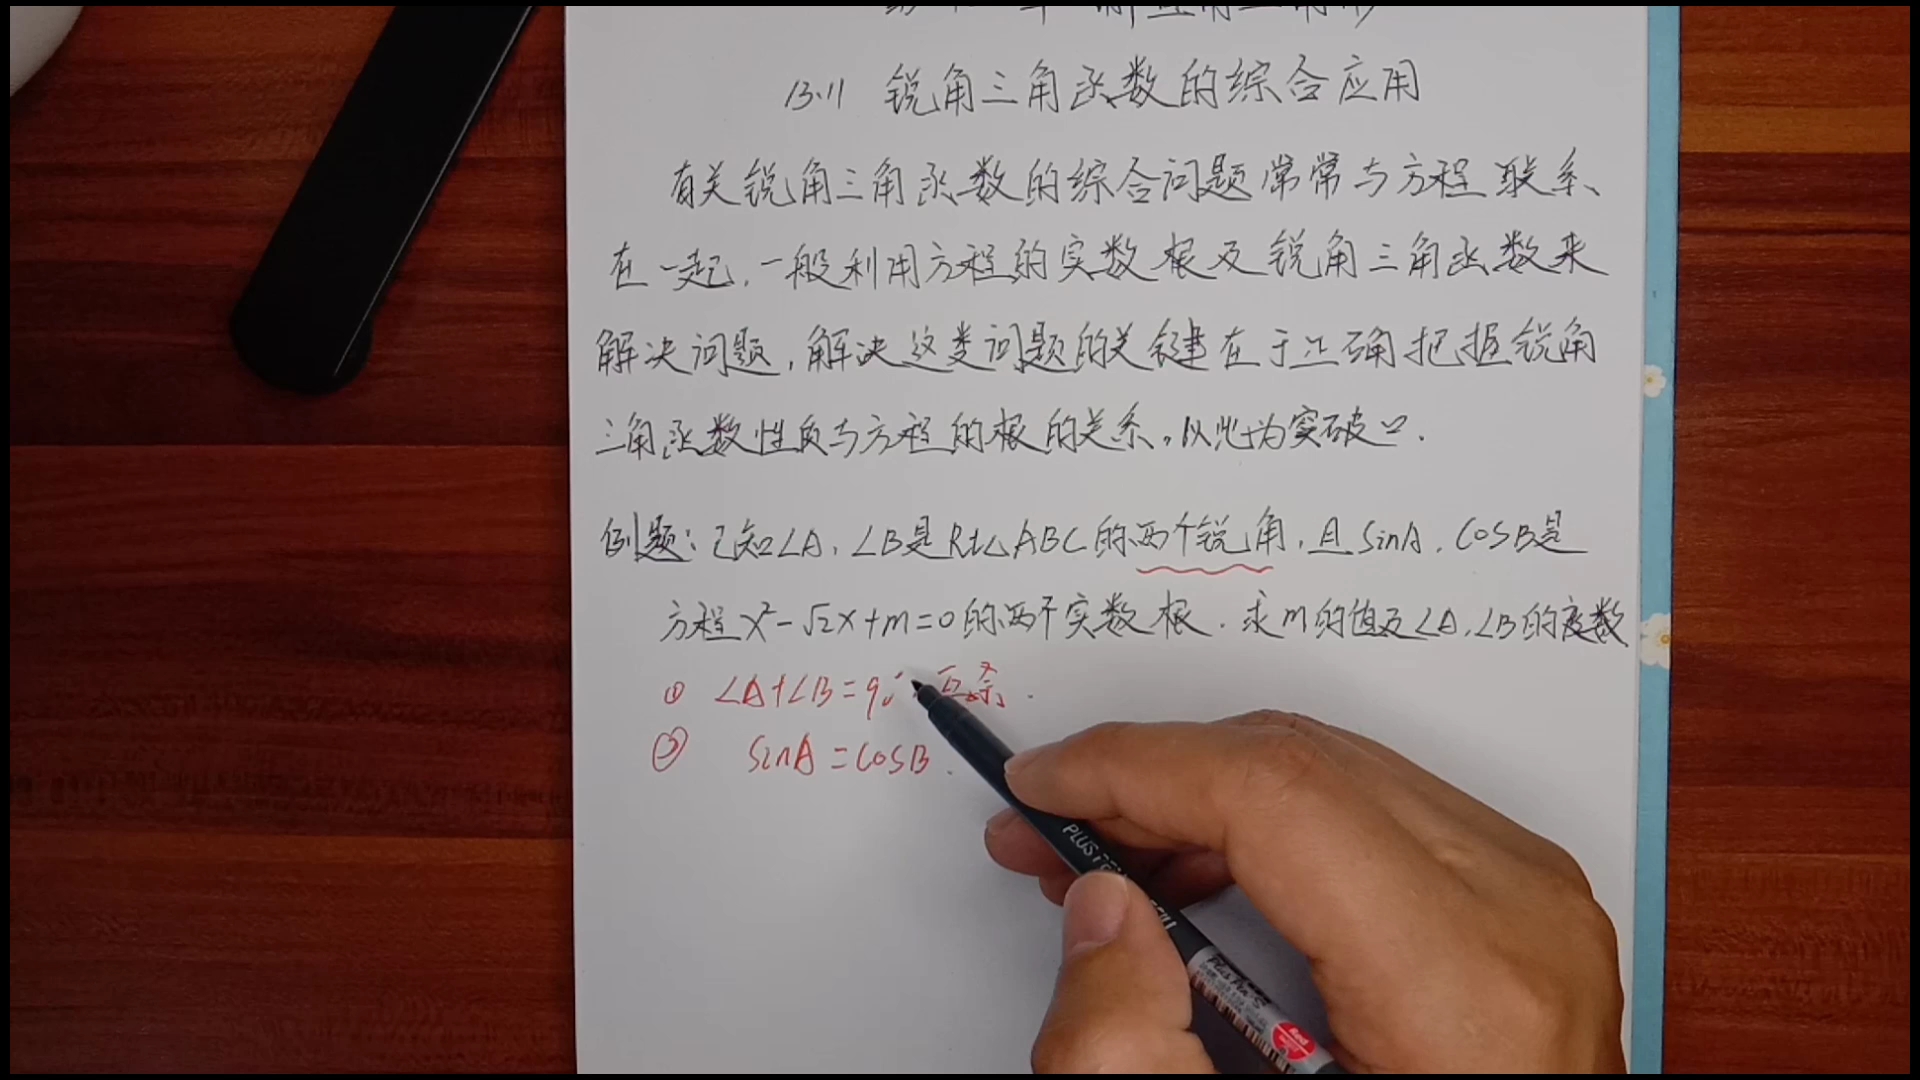 13.11 锐角三角函数的综合应用
有关锐角三角函数的综合问题常常与方程联系
在一起,一般利用方程的实数根及锐角三角函数来
解决问题,解决这类问题的关键在于正确把握锐角
三角函数性质与方程的根的关系,以此为突破口.
例题:已知∠A,∠B是Rt△ABC的两个锐角,且sinA,cosB是
方程x²-√2x+m=0的两个实数根.求m的值及∠A,∠B的度数
① ∠A+∠B=90° 互余.
② sinA=cosB.
PLUS PEN
Plus Pen S
Red